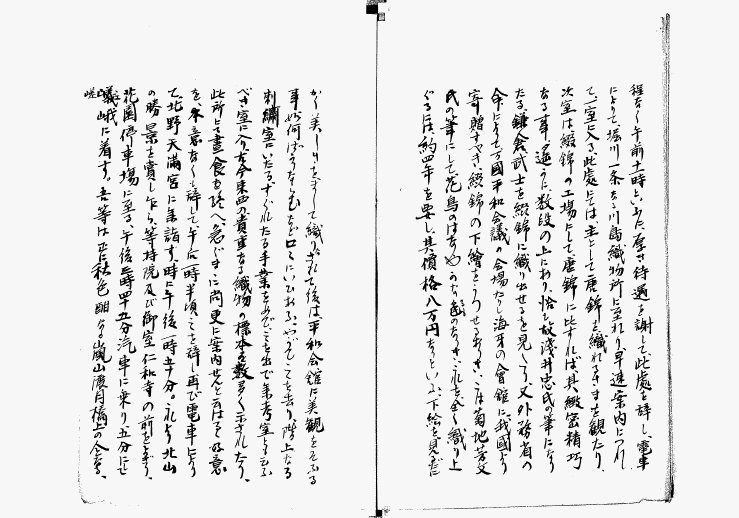 程なく午前十一時といふに、厚き待遇を謝して此處を辞し、電車
によりて、堀川一条なる川島織物所に至れり。早速案内につれ
て、一室に入る。此處にては、主として唐錦を織れるさまを観たり。
次室は綴錦の工場にして唐錦に比すれば、其緻密精巧
なる事、遙に数段の上にあり。恰も故浅井忠氏の筆になり
たる鎌倉武士を綴錦に織り出せるを見しぬ。又外務省の
命によりて万國平和会議の会場たりし海牙の會館に、我國より
寄贈すべき綴錦の下繪をうつせるあり。こは菊地芳文
氏の筆にして、花鳥のはなやかなる画なりき。これを全く織り上
ぐるには、約四年を要し、其價格八万円なりといふ。下絵を見てだに
かく美しきをまして織りなされて後は平和会館に美観をそふる
事如何ばかりならむなど口々にいひあふ。やがてここを去り、階上なる
刺繍室にいたる。すぐれたる手業をめでつつを出で、参考室ともいふ
べき室に入り、古今東西の貴重なる織物の標本を数多く示されたり。
此所にて晝食も終へ、急ぐまゝに尚更に案内せんと云はるる好意
を、本意なくも辞して、午后一時半頃ここを辞し、再び電車により
て、北野天満宮に参詣す。時に午後一時五十分。それより北山
の勝景を賞し乍ら、等持院及び御室仁和寺の前をよぎり、
花園停車場に至る。午後二時四十五分汽車に乗り五分にて
嵯峨に着す。吾等は正に秋色酣なる嵐山渡月橋上の人となる。